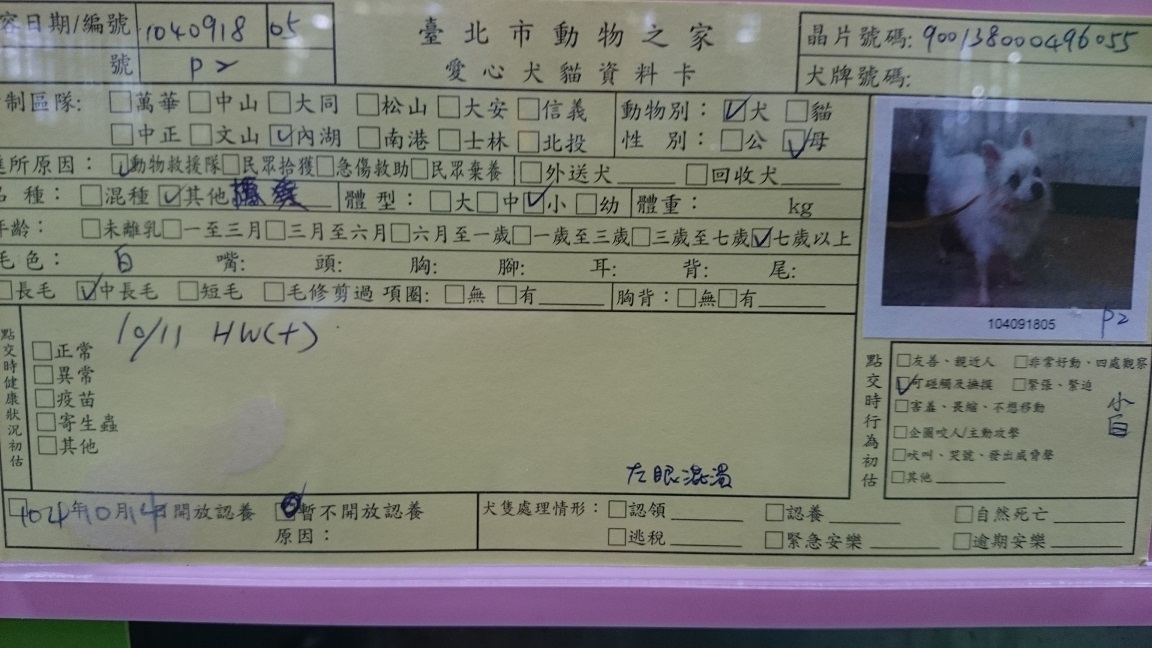 容日期/編號 1040918 05
號 P2
臺北市動物之家
愛心犬貓資料卡
晶片號碼: 900138000496055
犬牌號碼:
制區隊: □萬華 □中山 □大同 □松山 □大安 □信義
□中正 □文山 ☑內湖 □南港 □士林 □北投
動物別: ☑犬 □貓
性別: □公 ☑母
所原因: ☑動物救援隊 □民眾拾獲 □急傷救助 □民眾棄養 □外送犬 □回收犬
種: □混種 ☑其他 體型: □大 □中 ☑小 □幼 體重: kg
年齡: □未離乳 □一至三月 □三月至六月 □六月至一歲 □一歲至三歲 □三歲至七歲 ☑七歲以上
毛色: 白 嘴: 頭: 胸: 腳: 耳: 背: 尾:
□長毛 ☑中長毛 □短毛 □毛修剪過 項圈: □無 □有 胸背: □無 □有
104091805 P2
點交時健康狀況初估
10/11 HW(+)
□正常
□異常
□疫苗
□寄生蟲
□其他
左眼混濁
點交時行為初估
□友善、親近人 □非常好動、四處觀察
☑可碰觸及撫摸 □緊張、緊迫
□害羞、畏縮、不想移動
□企圖咬人/主動攻擊
□吠叫、哭號、發出威脅聲
□其他
小白
□104年10月14日開放認養 □暫不開放認養
原因:
犬隻處理情形: □認領 □認養 □自然死亡
□逃稅 □緊急安樂 □逾期安樂